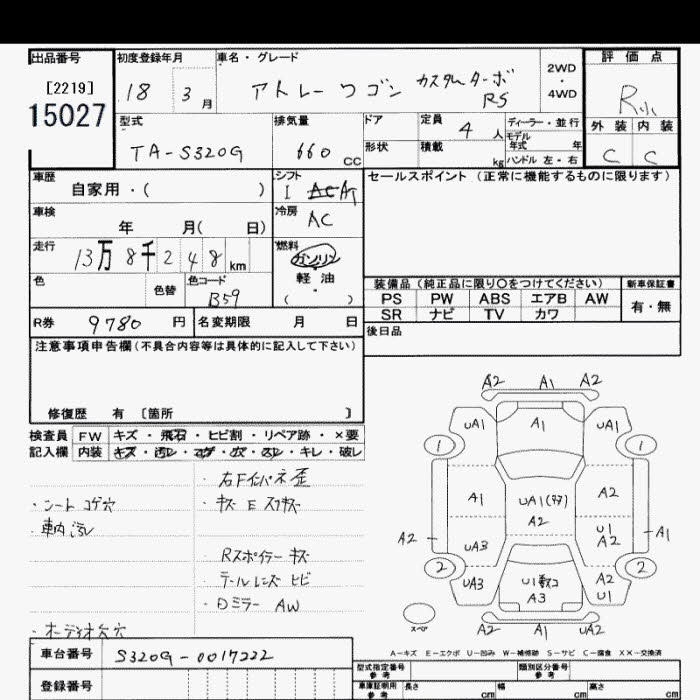 出品番号 初度登録年月 車名・グレード 評価点
[2219] 18 3月 アトレーワゴン カスタムターボ RS 2WD・4WD R小
15027
型式 排気量 ドア 定員 4人 ディーラー・並行 外装 内装
TA-S320G 660cc 形状 積載 kg モデル年式 年 ハンドル 左・右 C C
車歴 シフト セールスポイント (正常に機能するものに限ります)
自家用・( ) I AT
車検 冷房
年 月( 日) AC
走行 燃料
13万8千248km ガソリン
色 色替 色コード 軽油 装備品(純正品に限り○をつけてください) 新車保証書
B59 ( ) PS PW ABS エアB AW 有・無
SR ナビ TV カワ
R券 9780円 名変期限 月 日 後日品
注意事項申告欄(不具合内容等は具体的に記入して下さい)
修復歴 有 〔箇所 〕
検査員 FW キズ・飛石・ヒビ割・リペア跡・×要
記入欄 内装 キズ・汚レ・コゲ・穴・スレ・キレ・破レ
・右Fインパネ歪
・シートコゲ穴 ・キズ E スリキズ
・車内汚レ
Rスポイラーキズ
・テールレンズヒビ
・Dミラー AW
・オーディオ穴
A2 A1 A2
UA1 A1 UA1
1 1
A1 UA1 A2
A2 A2 U1 A2 A1
UA3
2 2
UA3 U1 A3 A2 U1
スペア A2 A1 UA2
A-キズ E-エクボ U-凹み W-補修跡 S-サビ C-腐食 XX-交換済
車台番号 S320G-0017222 型式指定番号 参考 類別区分番号 参考
登録番号 車庫証明用 参考 長さ cm 幅 cm 高さ cm